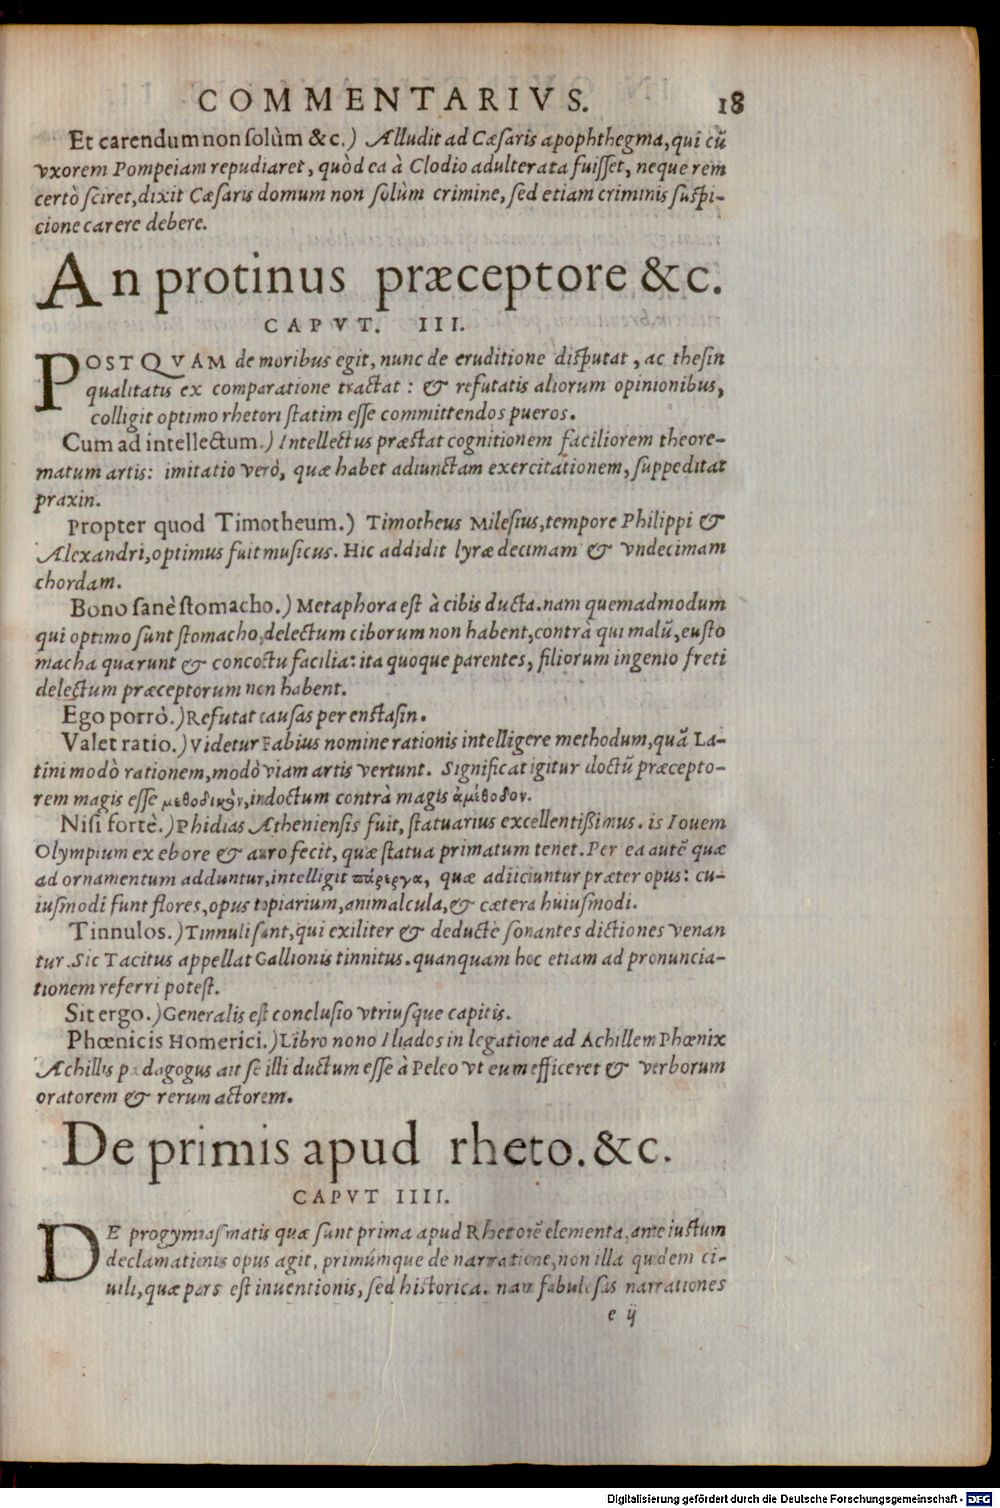 COMMENTARIVS. 18
Et carendum non solùm &c.) Alludit ad Cæsaris apophthegma, qui cũ
vxorem Pompeiam repudiaret, quòd ea à Clodio adulterata fuisset, neque rem
certò sciret, dixit Cæsaris domum non solùm crimine, sed etiam criminis suspi-
cione carere debere.
An protinus præceptore &c.
CAPVT. III.
POSTQVAM de moribus egit, nunc de eruditione disputat, ac thesin
qualitatis ex comparatione tractat: & refutatis aliorum opinionibus,
colligit optimo rhetori statim esse committendos pueros.
Cum ad intellectum.) Intellectus præstat cognitionem faciliorem theore-
matum artis: imitatio verò, quæ habet adiunctam exercitationem, suppeditat
praxin.
Propter quod Timotheum.) Timotheus Milesius, tempore Philippi &
Alexandri, optimus fuit musicus. Hic addidit lyræ decimam & vndecimam
chordam.
Bono sanè stomacho.) Metaphora est à cibis ducta. nam quemadmodum
qui optimo sunt stomacho, delectum ciborum non habent, contrà qui malũ, eusto
macha quærunt & concoctu facilia: ita quoque parentes, filiorum ingenio freti
delectum præceptorum non habent.
Ego porrò.) Refutat causas per enstasin.
Valet ratio.) Videtur Fabius nomine rationis intelligere methodum, quã La-
tini modò rationem, modò viam artis vertunt. Significat igitur doctũ præcepto-
rem magis esse μεθοδικὸν, indoctum contrà magis ἀμέθοδον.
Nisi fortè.) Phidias Atheniensis fuit, statuarius excellentißimus. is Iouem
Olympium ex ebore & auro fecit, quæ statua primatum tenet. Per ea autẽ quæ
ad ornamentum adduntur, intelligit πάρεργα, quæ adiiciuntur præter opus: cu-
iusmodi sunt flores, opus topiarium, animalcula, & cætera huiusmodi.
Tinnulos.) Tinnuli sunt, qui exiliter & deductè sonantes dictiones venan
tur. Sic Tacitus appellat Gallionis tinnitus. quanquam hoc etiam ad pronuncia-
tionem referri potest.
Sit ergo.) Generalis est conclusio vtriusque capitis.
Phœnicis Homerici.) Libro nono Iliados in legatione ad Achillem Phœnix
Achillis pædagogus ait se illi ductum esse à Peleo vt eum efficeret & verborum
oratorem & rerum actorem.
De primis apud rheto. &c.
CAPVT IIII.
DE progymnasmatis quæ sunt prima apud Rhetorẽ elementa, ante iustum
declamationis opus agit, primúmque de narratione, non illa quidem ci-
uili, quæ pars est inuentionis, sed historica. nam fabulosas narrationes
e ij
Digitalisierung gefördert durch die Deutsche Forschungsgemeinschaft - DFG